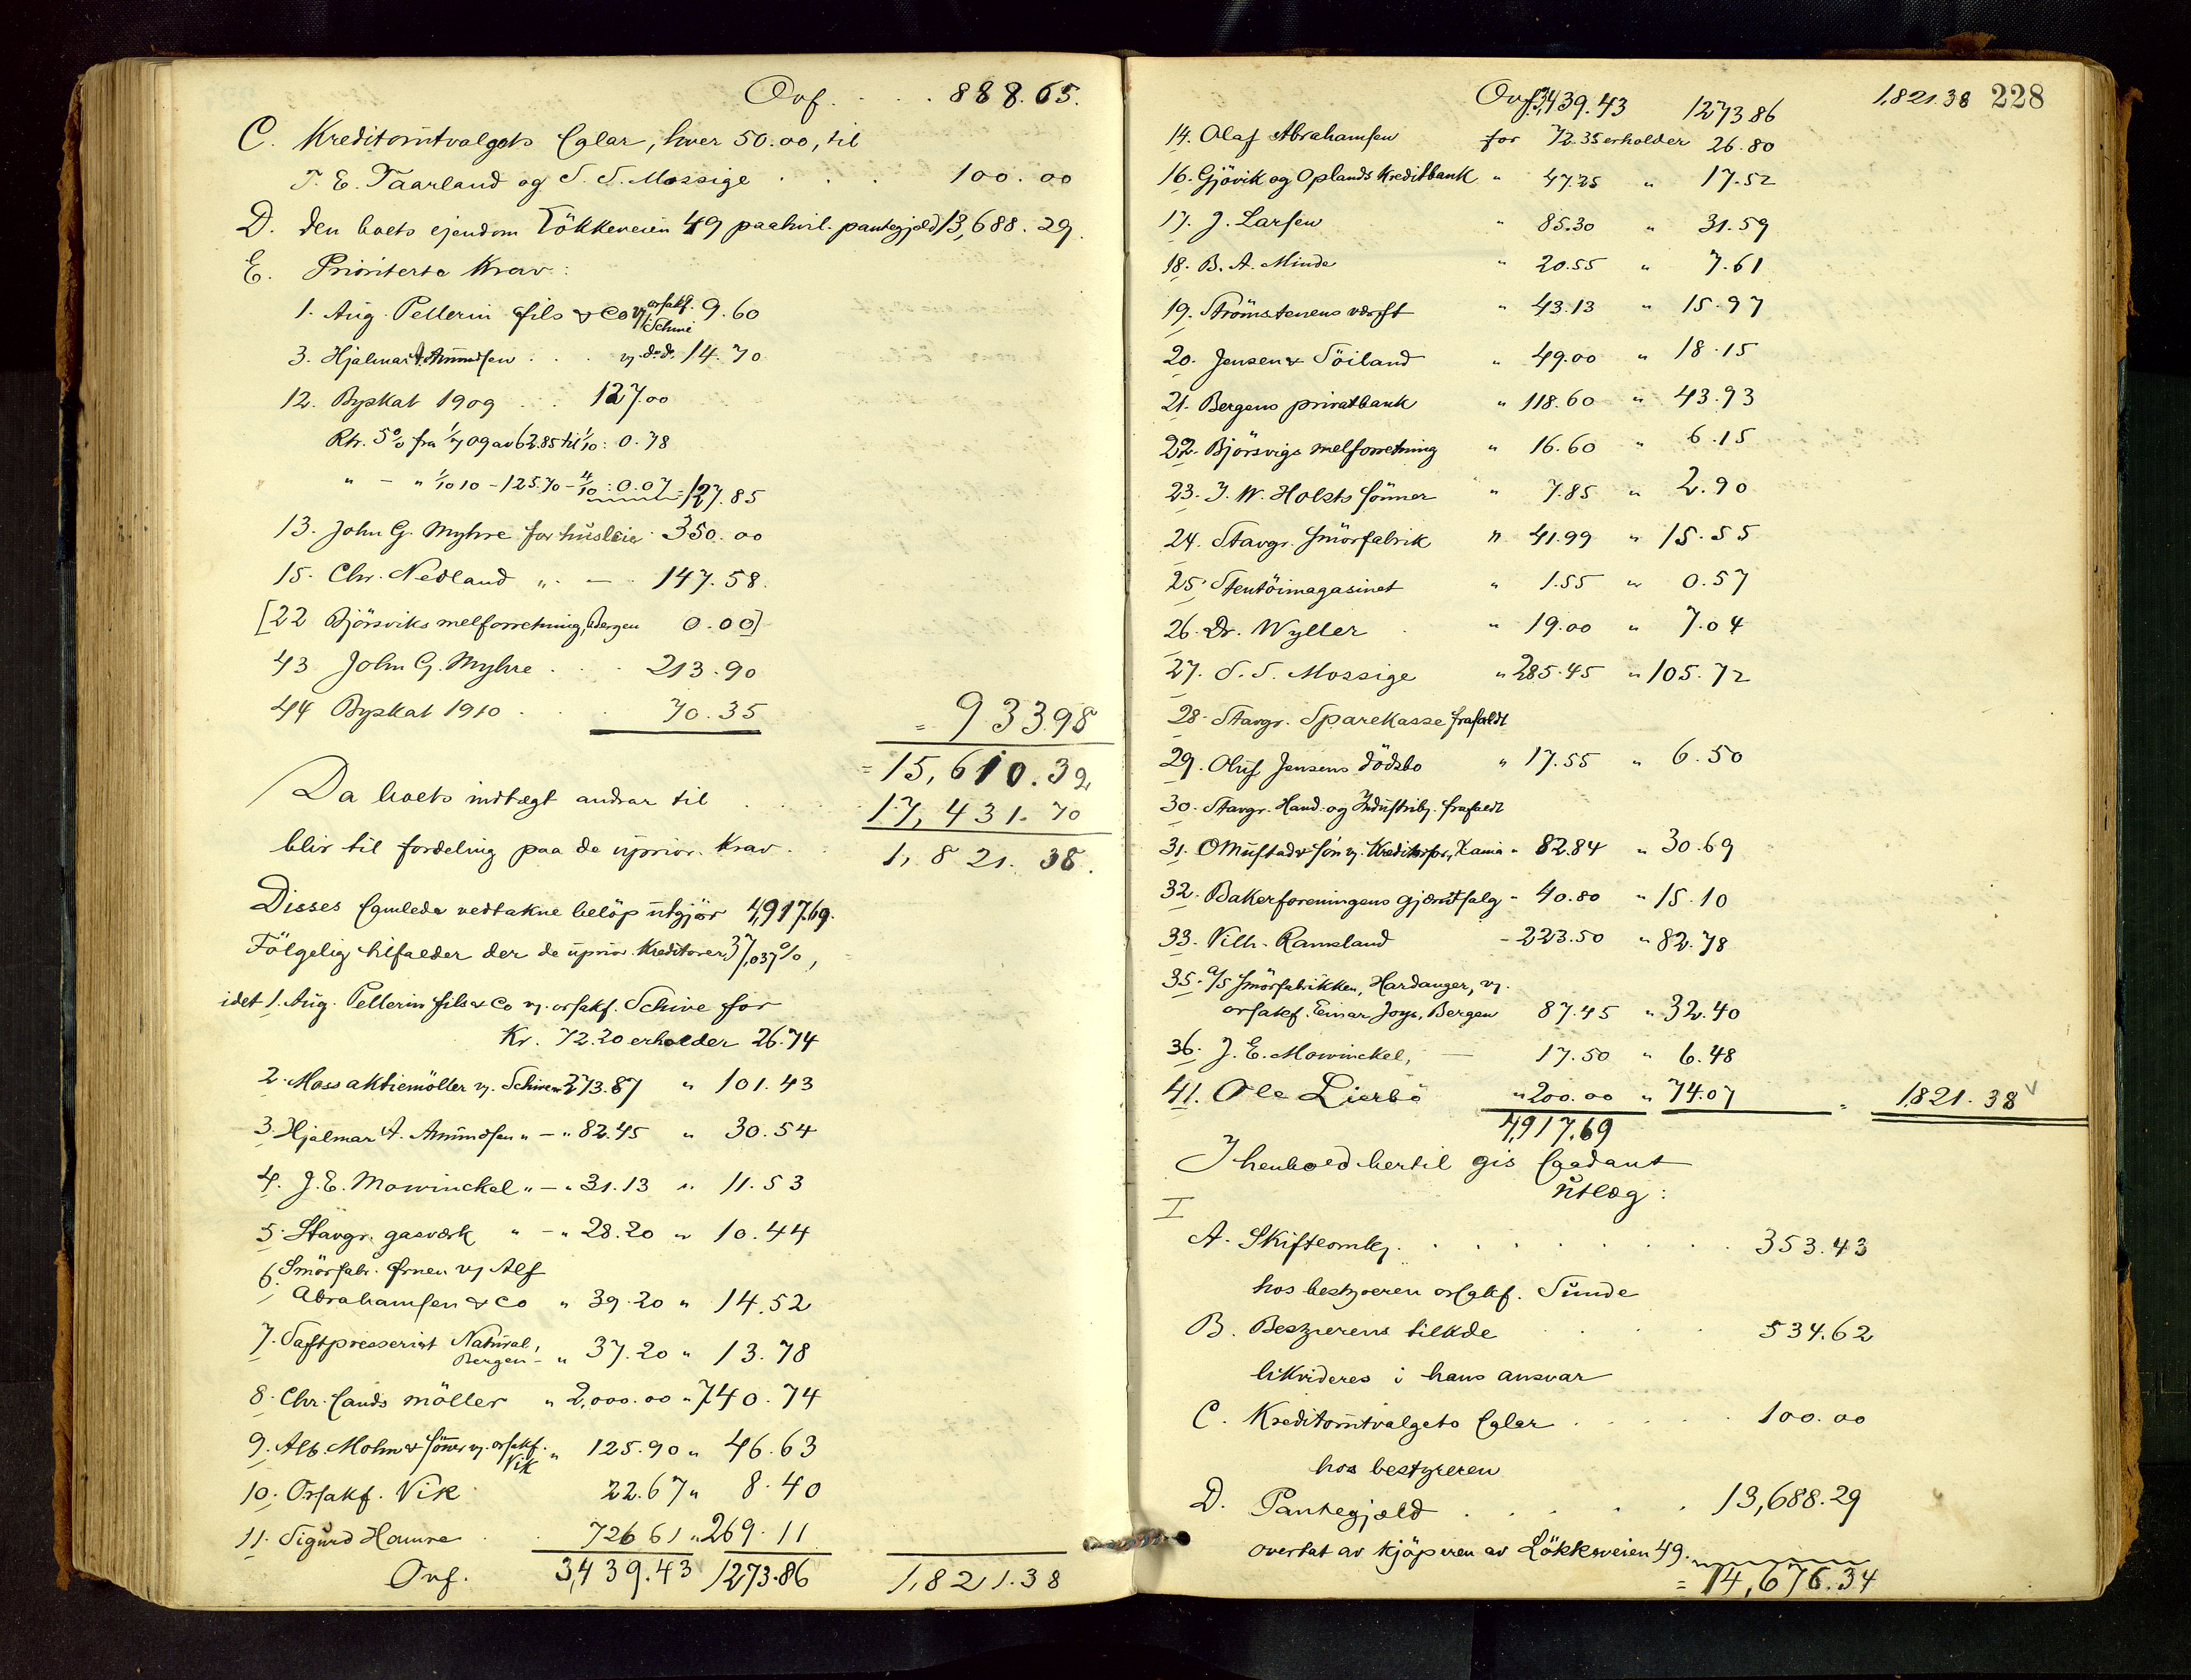 Ovf. . . . 888.05.
C. Kreditorutvalgets salær, hver 50.00, til
T. E. Taarland og S. S. Mossige . . . 100.00
D. den boets ejendom Lökkeveien 49 paahvil. pantegjæld 13,688.29.
E. Prioriterte Krav:
1. Aug. Pellerin fils & Co v/ orsakf. Schive 9.60
3. Hjalmar A. Amundsen . . . v. do. do. 14.70
12. Byskat 1909 . . . 127.00
Rtr. 5% fra 1/7 09 av 62.85 til 1/10: 0.78
" - " 1/10 10 - 125.70 - 11/10: 0.07 = 127.85
13. John G. Myhre for husleie 350.00
15. Chr. Nedland " - 147.58.
[22 Björsviks melforretning, Bergen 0.00]
43 John G. Myhre . . . 213.90
44 Byskat 1910 . . . 70.35 = 933.98
= 15,610.32
Da boets indtægt andrar til . . . 17,431.70
blir til fordeling paa de uprior. Krav . 1,821.38.
Disses samlede vedtakne belöp utgjör 4,917.69.
Fölgelig tilfalder der de uprior. Kreditorer 37,037%,
idet 1. Aug. Pellerin fils & Co v. orsakf. Schive for
Kr. 72.20 erholder 26.74
2. Moss aktiemöller v. Schive " 273.87 " 101.43
3. Hjalmar A. Amundsen " - " 82.45 " 30.54
4. J. E. Mowinckel " - " 31.13 " 11.53
5. Stavgr. gasverk " - " 28.20 " 10.44
6. Smörfabr. Örnen v/ Alf
Abrahamsen & Co " 39.20 " 14.52
7. Saftpresseriet Natural,
Bergen - " 37.20 " 13.78
8. Chr. Sands möller " 2,000.00 " 740.74
9. Alb. Mohn & Sönner v. orsakf. Vik " 125.90 " 46.63
10. Orsakf. Vik 22.67 " 8.40
11. Sigurd Hamre . . 726 61 " 269.11
Ovf. 3,439.43 1273.86 1,821.38
Ovf. 3,439.43 1273 86 1,821.38 228
14. Olaf Abrahamsen for 72.35 erholder 26.80
16. Gjövik og Oplands Kreditbank " 47.25 " 17.52
17. J. Larsen " 85.30 " 31.59
18. B. A. Minde " 20.55 " 7.61
19. Strömstenens værft " 43.13 " 15.97
20. Jensen & Söiland " 49.00 " 18.15
21. Bergens privatbank " 118.60 " 43.93
22. Björsvigs melforretning " 16.60 " 6.15
23. J. W. Holsts sönner " 7.85 " 2.90
24. Stavgr. smörfabrik " 41.99 " 15.55
25. Stentöimagasinet " 1.55 " 0.57
26. Dr. Wyller . " 19.00 " 7.04
27. S. S. Mossige " 285.45 " 105.72
28. Stavgr. Sparekasse frafaldt
29. Oluf Jensens dödsbo " 17.55 " 6.50
30. Stavgr. Hand. og Industribk. frafaldt
31. O Mustad & sön v. Kreditorfor., Xania " 82.84 " 30.69
32. Bakerforeningens gjærutsalg " 40.80 " 15.10
33. Vilh. Ramsland - 223.50 " 82.78
35. A/S Smörfabrikken, Hardanger, v.
orsakf. Einar Joys, Bergen 87.45 " 32.40
36. J. E. Mowinckel, — 17.50 " 6.48
41. Ole Lierbö " 200.00 " 74.07 = 1,821.38 v
4,917.69
I henhold hertil gis saadant
utlæg:
I
A. Skifteomk. . . . . . . . . 353.43
hos bestyreren orsakf. Sunde
B. Bestyrerens tilkde . . . . 534.62
likvideres i hans ansvar
C. Kreditorutvalgets salær . . . . . 100.00
hos bestyreren
D. Pantegjæld . . . . . 13,688.29
overtat av kjöperen av Lökkeveien 49.
= 14,676.34